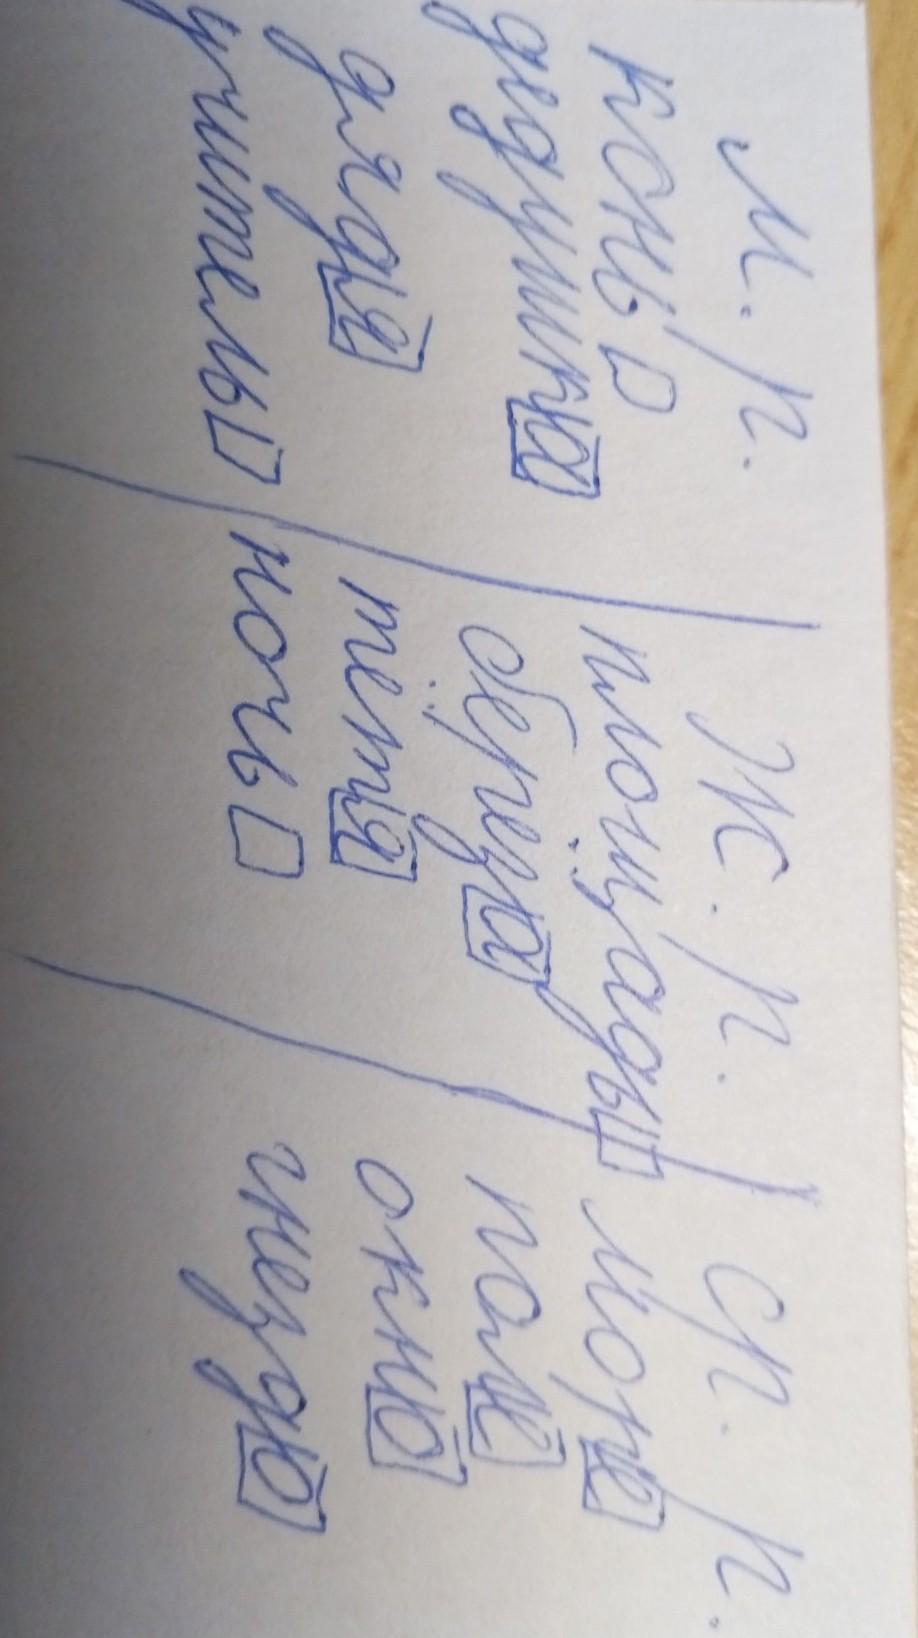 м. р. ж. р. ср. р.
конь площадь море
дедушка берёза поле
дядя тётя окно
учитель ночь гнездо